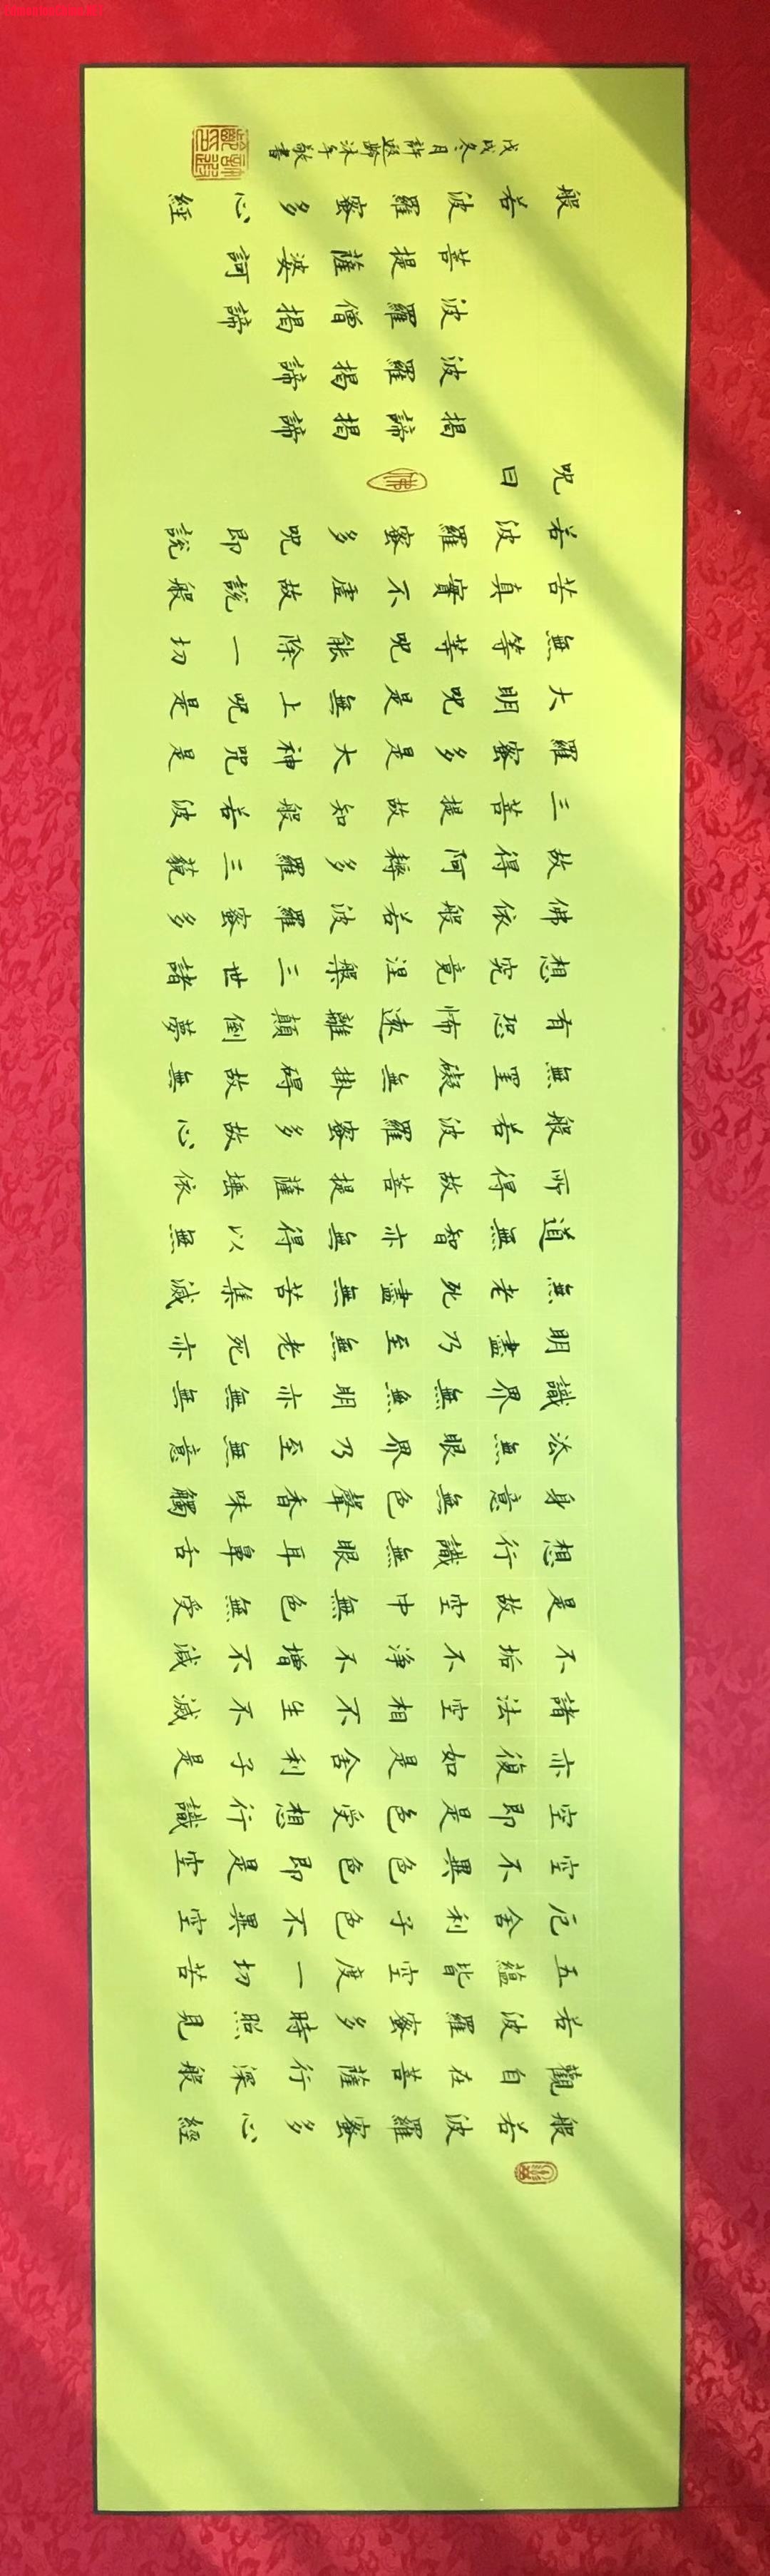 般若波羅蜜多心經
觀自在菩薩行深般
若波羅蜜多時照見
五蘊皆空度一切苦
厄舍利子色不異空
空不異色色即是空
空即是色受想行識
亦復如是舍利子是
諸法空相不生不滅
不垢不淨不增不減
是故空中無色無受
想行識無眼耳鼻舌
身意無色聲香味觸
法無眼界乃至無意
識界無無明亦無無
明盡乃至無老死亦
無老死盡無苦集滅
道無智亦無得以無
所得故菩提薩埵依
般若波羅蜜多故心
無罣礙無掛碍故無
有恐怖遠離顛倒夢
想究竟涅槃三世諸
佛依般若波羅蜜多
故得阿耨多羅三藐
三菩提故知般若波
羅蜜多是大神咒是
大明呪是無上呪是
無等等呪能除一切
苦真實不虛故說般
若波羅蜜多呪即說
呪曰
佛
揭諦揭諦
波羅揭諦
波羅僧揭諦
菩提薩婆訶
般若波羅蜜多心經
戊戌冬月許齡沐手敬書